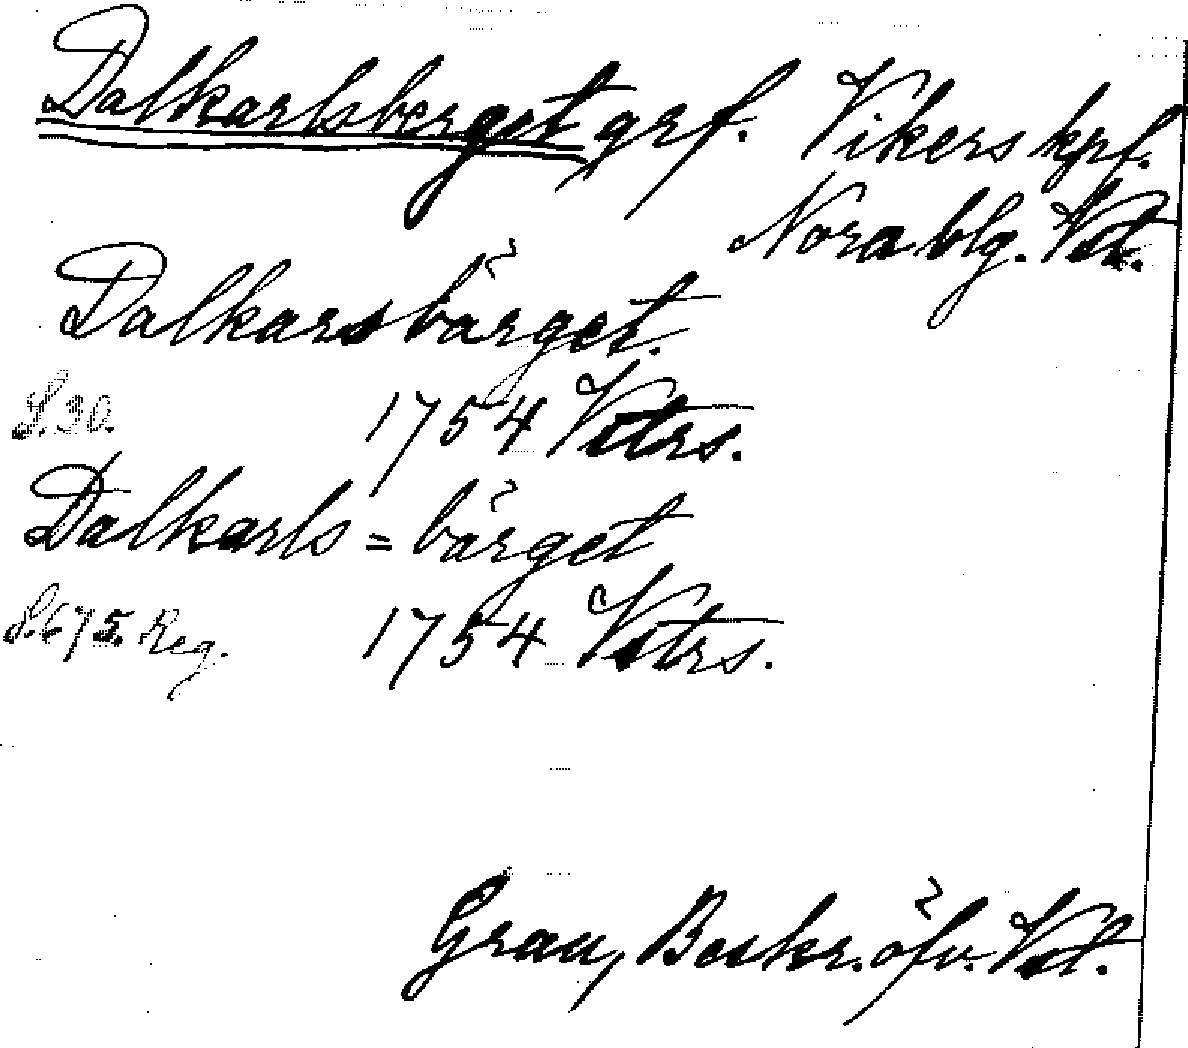 Dalkarlsberget grf. Vikers kpf.
Nora blg. Vstl.
Dalkarsbärget.
S. 30. 1754 Vstrs.
Dalkarls=bärget
S. 675. Reg. 1754 Vstrs.
Grau, Beskr. öfv. Vstl.